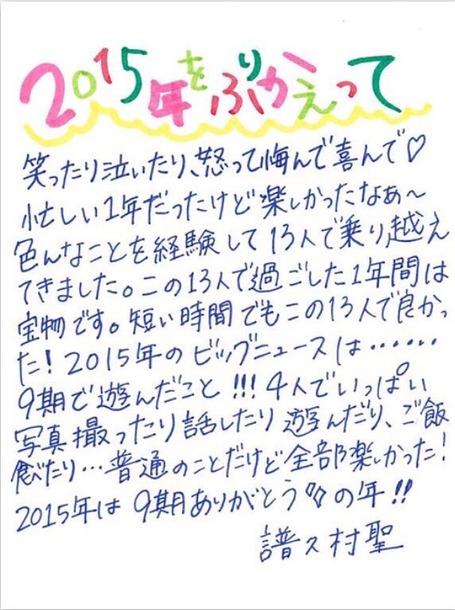 2015年をふりかえって
笑ったり泣いたり、怒って悔んで喜んで♡
忙しい1年だったけど楽しかったなぁ〜
色んなことを経験して13人で乗り越え
てきました。この13人で過ごした1年間は
宝物です。短い時間でもこの13人で良かっ
た!2015年のビッグニュースは……
9期で遊んだこと!!!4人でいっぱい
写真撮ったり話したり遊んだり、ご飯
食たり…普通のことだけど全部楽しかった!
2015年は9期ありがとう の年!!
譜久村聖